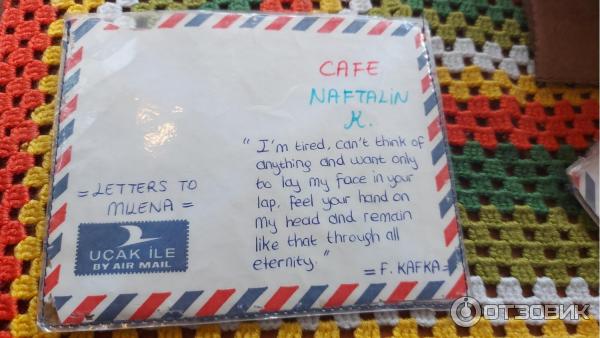 CAFE
NAFTALIN
K.
"I'm tired, can't think of
anything and want only
to lay my face in your
lap, feel your hand on
my head and remain
like that through all
eternity."
= F. KAFKA =
= LETTERS TO
MILENA =
UÇAK İLE
BY AIR MAIL
ОТЗОВИК